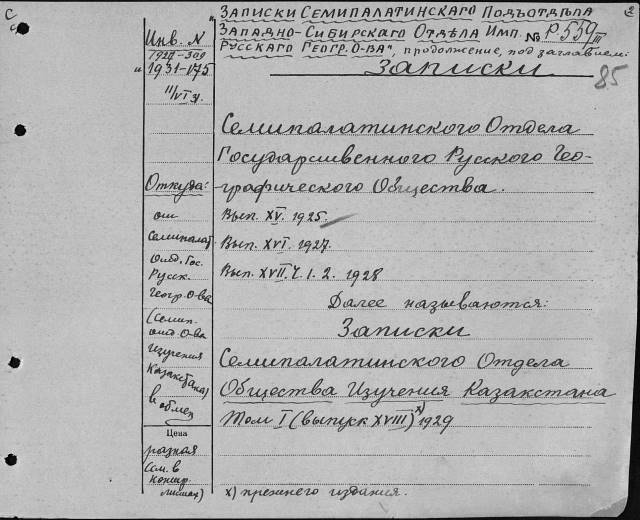 С
2
„Записки Семипалатинскаго Подъотдѣла
Западно-Сибирскаго Отдѣла Имп.
Русскаго Геогр. О-ва", продолжение, под заглавием:
№ Р 559/III
Записки
85
Инв. №
1927-309
" 1931-175
11/VI 31.
Семипалатинского Отдела
Государственного Русского Гео-
графического Общества.
Откуда:
от
Семипалат
Отд. Гос.
Русск.
Геогр. О-ва
(Семип.
отд. О-ва
Изучения
Казакстана)
в обмен
Вып. XV. 1925.
Вып. XVI. 1927.
Вып. XVII. Ч. 1. 2. 1928
Далее называются:
Записки
Семипалатинского Отдела
Общества Изучения Казакстана
Том I (выпуск XVIII) х) 1929
Цена
разная
(см. в
контр.
листах)
х) прежнего издания.